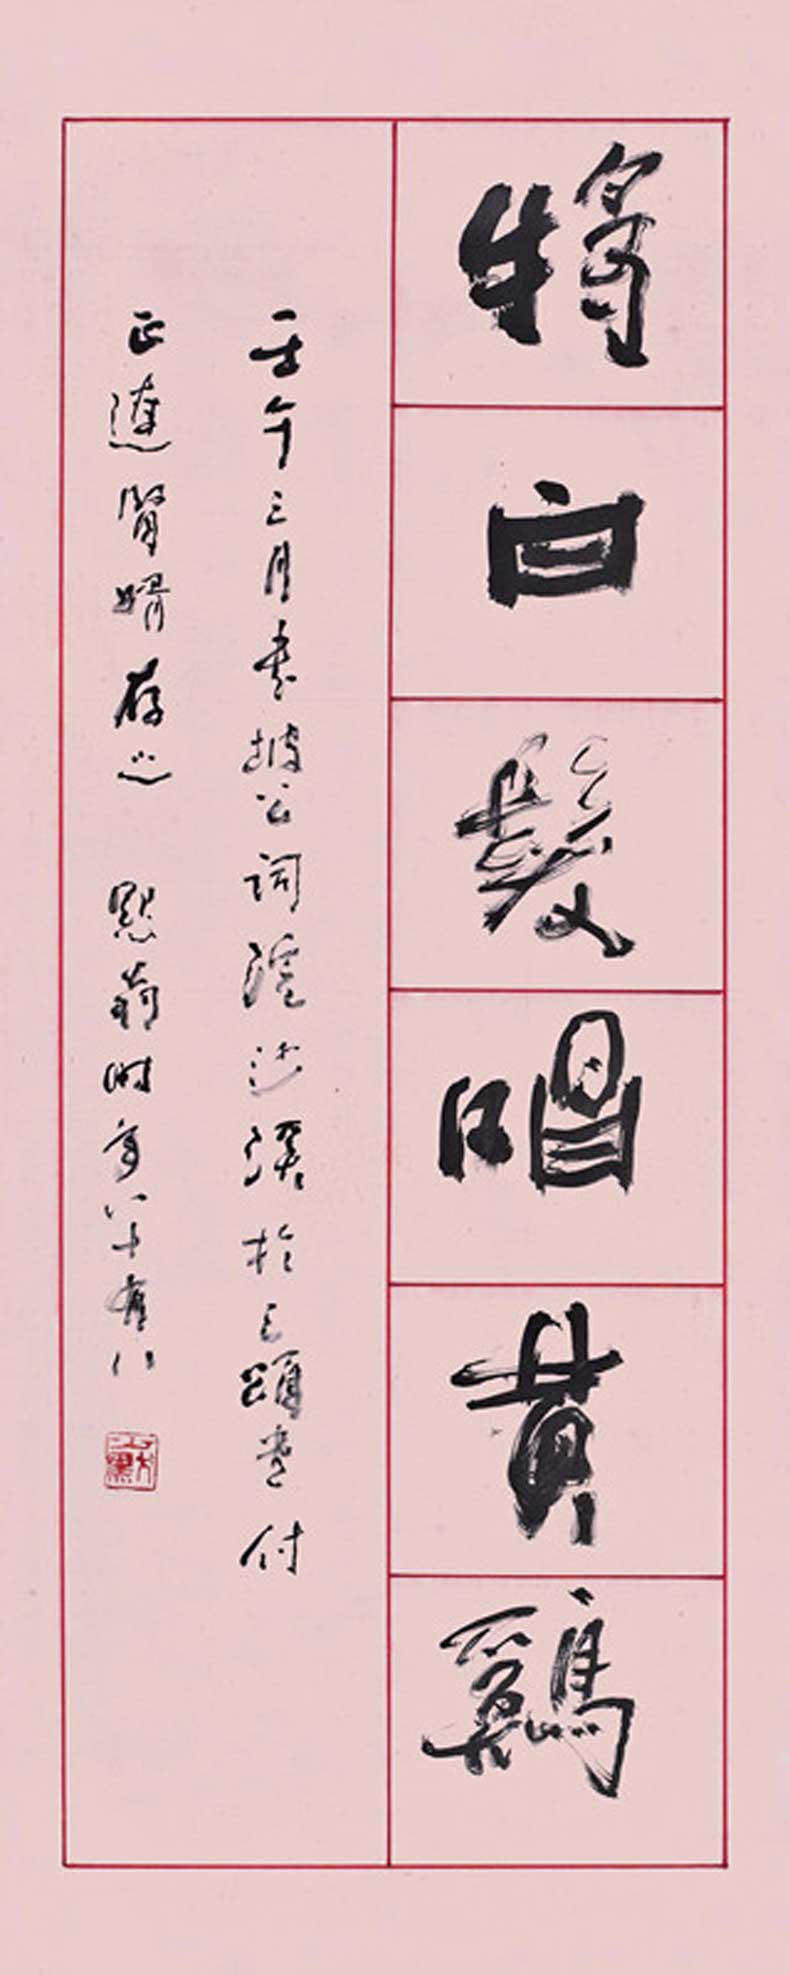 将白髮唱黄鷄
壬午三月書坡公詞浣沙溪於三頌堂付
正達賢婿存之 默翁时年八十有八